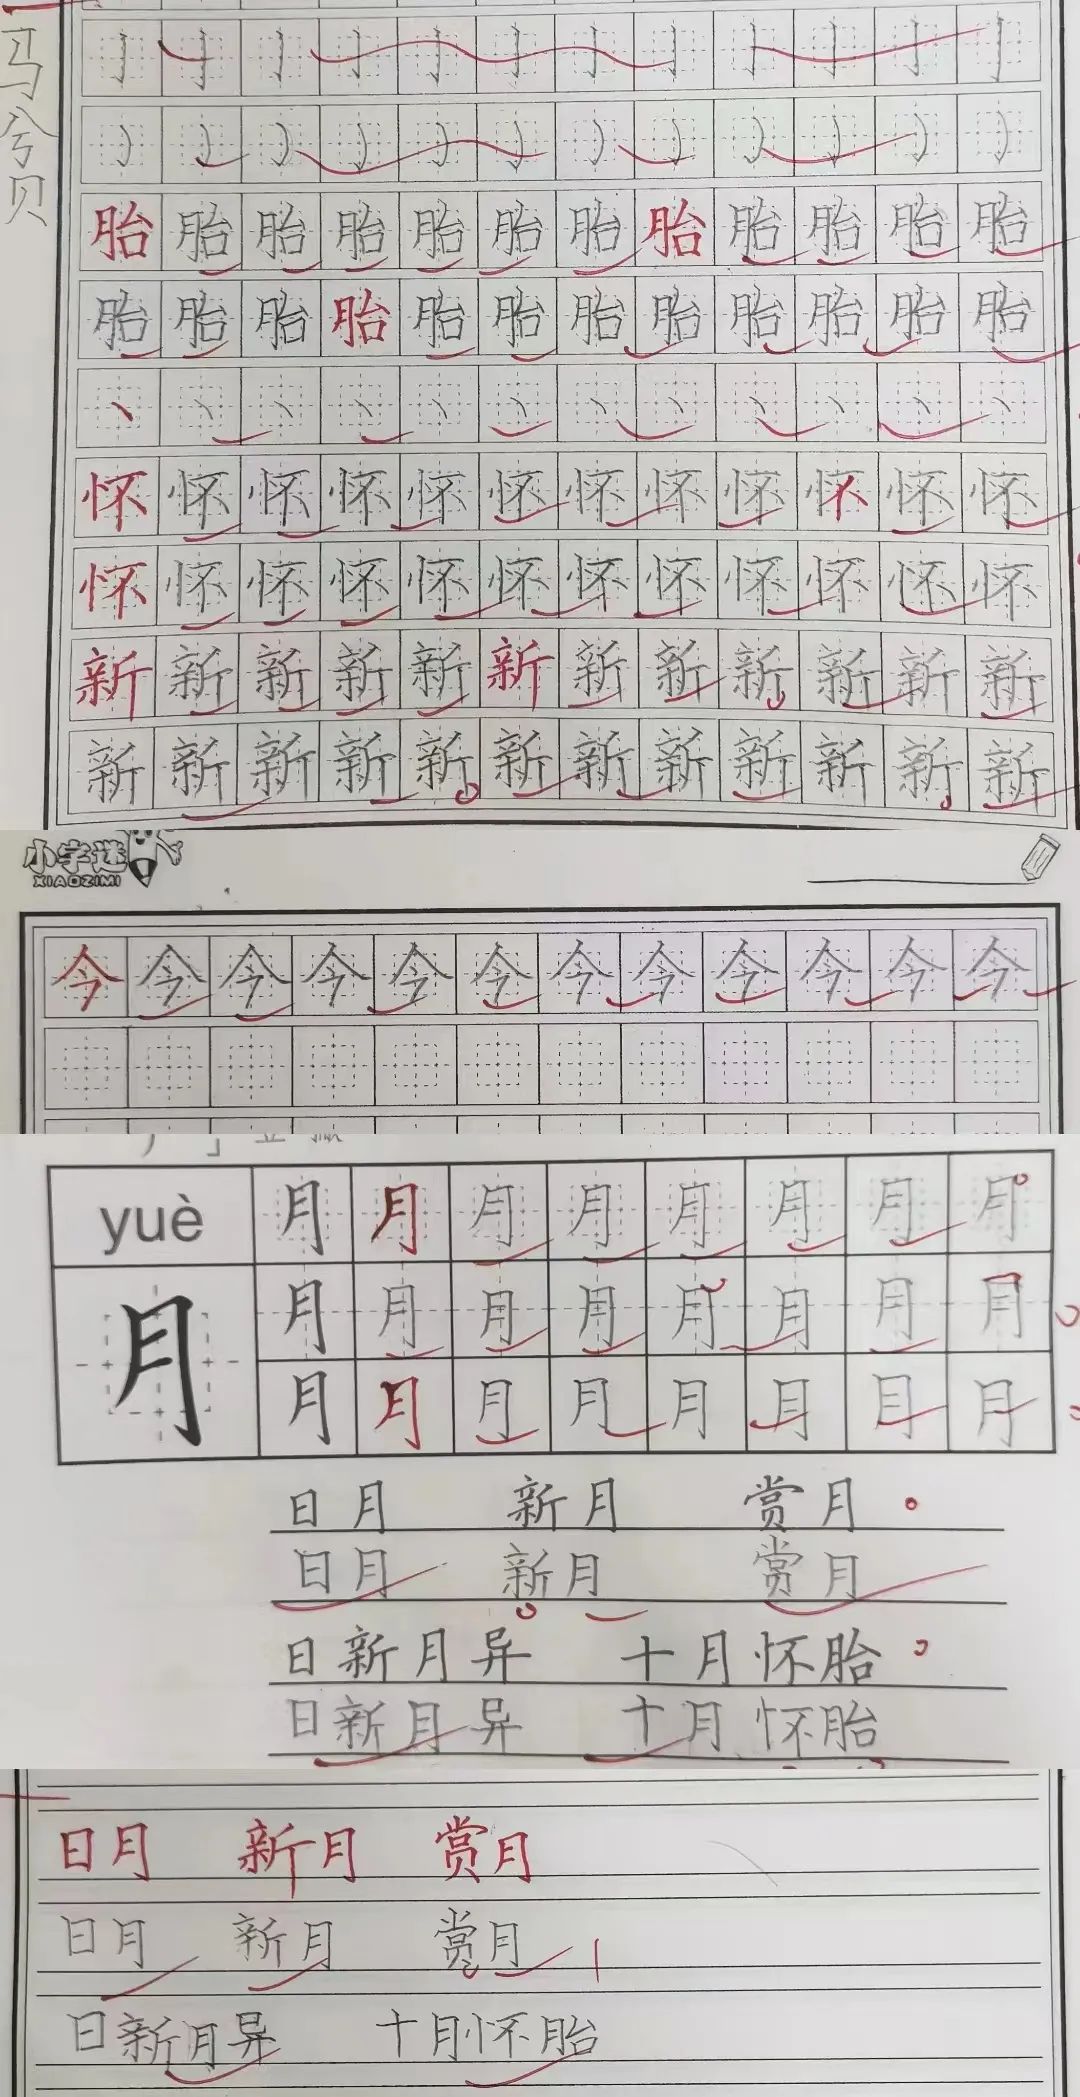 马兮贝
亅亅亅亅亅亅亅亅亅亅亅亅
胎胎胎胎胎胎胎胎胎胎胎胎
胎胎胎胎胎胎胎胎胎胎胎胎
丶丶丶丶丶丶丶丶丶丶丶丶
怀怀怀怀怀怀怀怀怀怀怀怀
怀怀怀怀怀怀怀怀怀怀怀怀
新新新新新新新新新新新新
新新新新新新新新新新新新
小字迷
XIAOZIMI
今今今今今今今今今今今今
yuè 月月月月月月月月
月 月月月月月月月月
月月月月月月月月
日月 新月 赏月
日月 新月 赏月
日新月异 十月怀胎
日新月异 十月怀胎
日月 新月 赏月
日月 新月 赏月
日新月异 十月怀胎